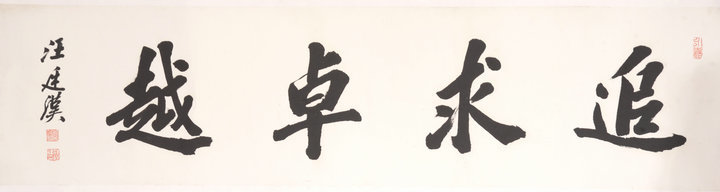 追求卓越
汪廷漢